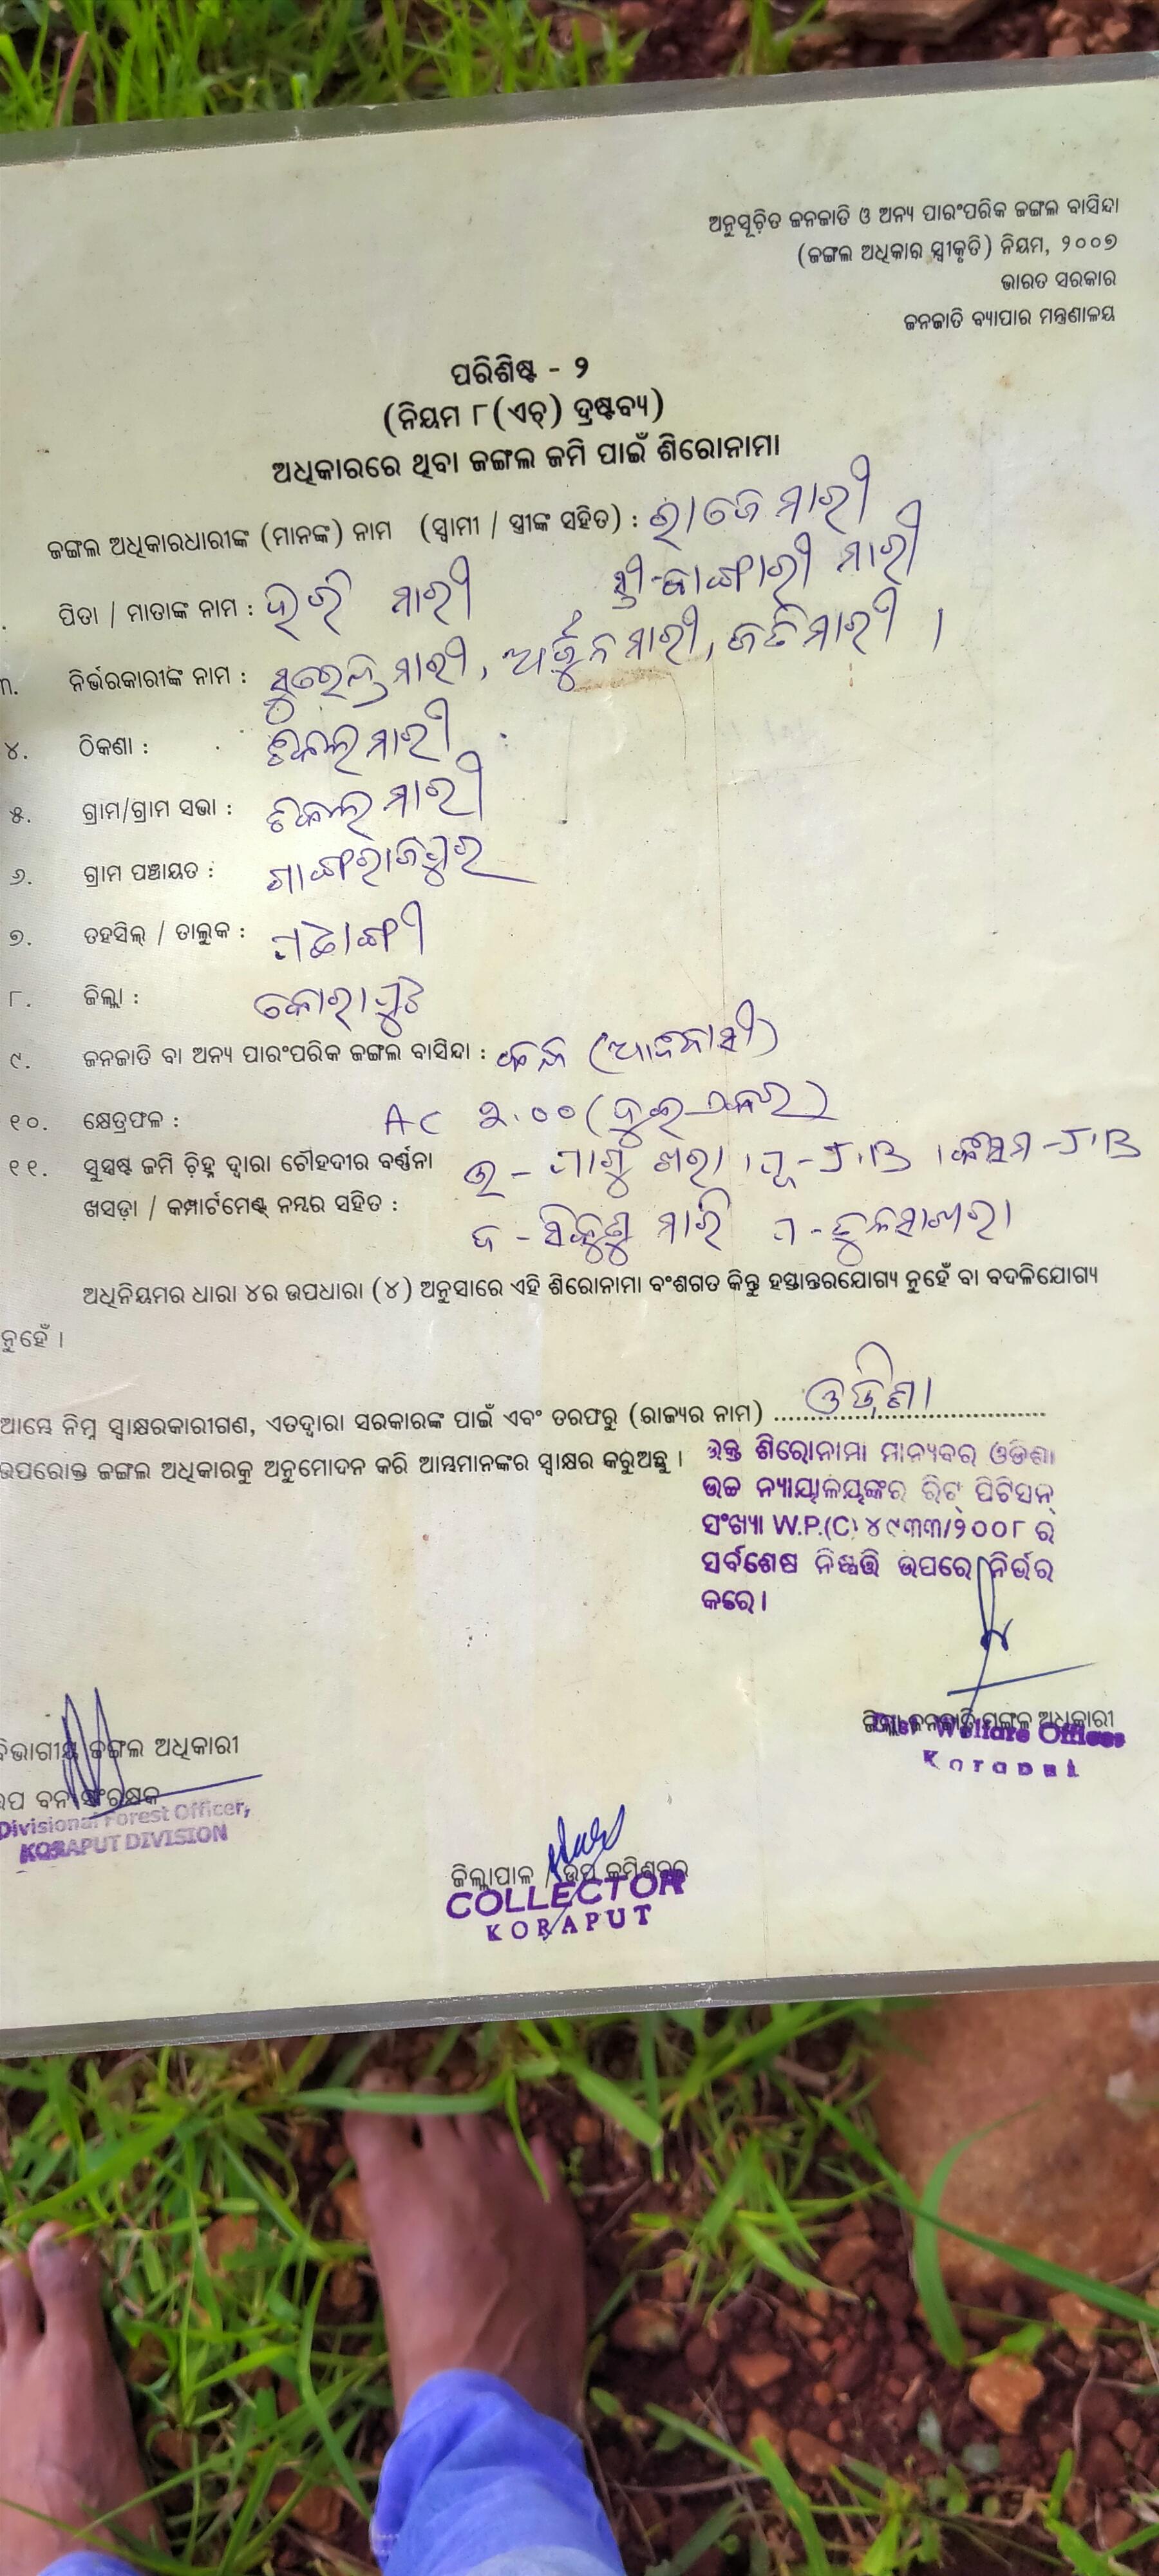 ଅନୁସୂଚିତ ଜନଜାତି ଓ ଅନ୍ୟ ପାରଂପରିକ ଜଙ୍ଗଲ ବାସିନ୍ଦା
(ଜଙ୍ଗଲ ଅଧିକାର ସ୍ୱୀକୃତି) ନିୟମ, ୨୦୦୭
ଭାରତ ସରକାର
ଜନଜାତି ବ୍ୟାପାର ମନ୍ତ୍ରଣାଳୟ
ପରିଶିଷ୍ଟ - ୨
(ନିୟମ ୮(ଏଚ୍) ଦ୍ରଷ୍ଟବ୍ୟ)
ଅଧିକାରରେ ଥିବା ଜଙ୍ଗଲ ଜମି ପାଇଁ ଶିରୋନାମା
ଜଙ୍ଗଲ ଅଧିକାରଧାରୀଙ୍କ (ମାନଙ୍କ) ନାମ (ସ୍ୱାମୀ / ସ୍ତ୍ରୀଙ୍କ ସହିତ) : ମାରୀ
ସ୍ତ୍ରୀ- ମାରୀ
ପିତା / ମାତାଙ୍କ ନାମ : ହରି ମାରୀ
୩. ନିର୍ଭରକାରୀଙ୍କ ନାମ : ସୁରେନ୍ଦ୍ର ମାରୀ, ଅର୍ଜୁନ ମାରୀ, ମାରୀ ।
୪. ଠିକଣା : ମାରୀ
୫. ଗ୍ରାମ/ଗ୍ରାମ ସଭା : ମାରୀ
୬. ଗ୍ରାମ ପଞ୍ଚାୟତ :
୭. ତହସିଲ୍ / ତାଲୁକ :
୮. ଜିଲ୍ଲା : କୋରାପୁଟ
୯. ଜନଜାତି ବା ଅନ୍ୟ ପାରଂପରିକ ଜଙ୍ଗଲ ବାସିନ୍ଦା : (ଆଦିବାସୀ)
୧୦. କ୍ଷେତ୍ରଫଳ : AC ୨.୦୦ (ଦୁଇ ଏକର)
୧୧. ସୁସ୍ପଷ୍ଟ ଜମି ଚିହ୍ନ ଦ୍ୱାରା ଚୌହଦୀର ବର୍ଣ୍ଣନା ଉ - ଖରା । ପୂ - J.B । କିସମ - J.B
ଖସଡ଼ା / କମ୍ପାର୍ଟମେଣ୍ଟ୍ ନମ୍ବର ସହିତ : ଦ - ମାରି ପ -
ଅଧିନିୟମର ଧାରା ୪ର ଉପଧାରା (୪) ଅନୁସାରେ ଏହି ଶିରୋନାମା ବଂଶଗତ କିନ୍ତୁ ହସ୍ତାନ୍ତରଯୋଗ୍ୟ ନୁହେଁ ବା ବଦଳିଯୋଗ୍ୟ
ନୁହେଁ ।
ଆମ୍ଭେ ନିମ୍ନ ସ୍ୱାକ୍ଷରକାରୀଗଣ, ଏତଦ୍ୱାରା ସରକାରଙ୍କ ପାଇଁ ଏବଂ ତରଫରୁ (ରାଜ୍ୟର ନାମ) ଓଡ଼ିଶା
ଉପରୋକ୍ତ ଜଙ୍ଗଲ ଅଧିକାରକୁ ଅନୁମୋଦନ କରି ଆମ୍ଭମାନଙ୍କର ସ୍ୱାକ୍ଷର କରୁଅଛୁ ।
ଉକ୍ତ ଶିରୋନାମା ମାନ୍ୟବର ଓଡିଶା
ଉଚ୍ଚ ନ୍ୟାୟାଳୟଙ୍କର ରିଟ୍ ପିଟିସନ୍
ସଂଖ୍ୟା W.P.(C) ୪୯୩୩/୨୦୦୮ ର
ସର୍ବଶେଷ ନିଷ୍ପତ୍ତି ଉପରେ ନିର୍ଭର
କରେ ।
ଜିଲ୍ଲା ଜନଜାତି ମଙ୍ଗଳ ଅଧିକାରୀ
Welfare Officer
Koraput
ବିଭାଗୀୟ ଜଙ୍ଗଲ ଅଧିକାରୀ
ଉପ ବନ ସଂରକ୍ଷକ
Divisional Forest Officer,
KORAPUT DIVISION
ଜିଲ୍ଲାପାଳ / ଉପ କମିଶନର
COLLECTOR
KORAPUT